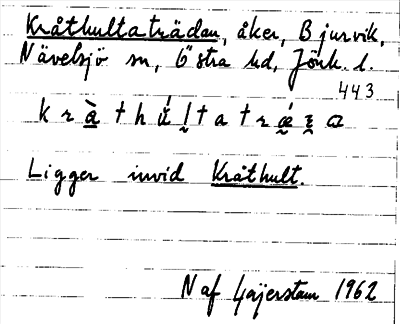 Kråthultaträdan, åker, Bjurvik,
Nävelsjö sn, Östra hd, Jönk. l.
443
Ligger invid Kråthult.
N af Geijerstam 1962